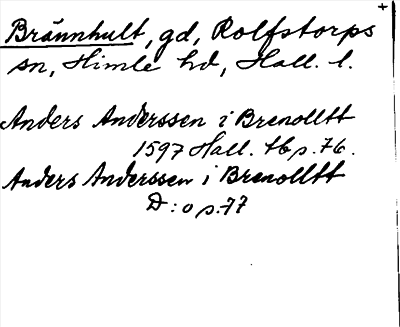 Brännhult, gd, Rolfstorps
sn, Himle hd, Hall. l.
Anders Anderssen i Brenolltt
1597 Hall. tb p. 76.
Anders Anderssen i Brenolltt
D:o p. 77